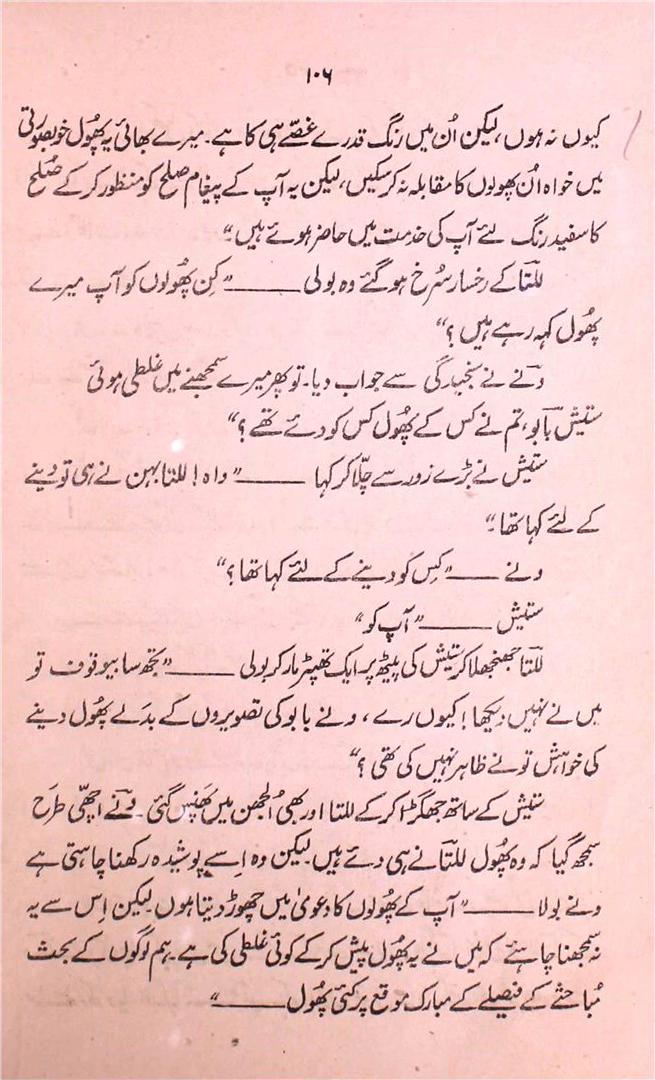 ۱۰۶
کیوں نہ ہوں، لیکن اُن میں رنگ قدرے غصّے ہی کا ہے۔ میرے بھائی یہ پھُول خوبصورتی
میں خواہ اُن پھولوں کا مقابلہ نہ کر سکیں، لیکن یہ آپ کے پیغام صلح کو منظور کر کے صُلح
کا سفید رنگ لئے آپ کی خدمت میں حاضر ہوئے ہیں۔“
للتا کے رخسار سُرخ ہو گئے وہ بولی ــــــــ ”کِن پھُولوں کو آپ میرے
پھُول کہہ رہے ہیں؟“
ونے نے سنجیدگی سے جواب دیا۔ تو پھر میرے سمجھنے میں غلطی ہوئی
ستیش بابو، تم نے کس کے پھُول کس کو دئے تھے؟“
ستیش نے بڑے زور سے چلّا کر کہا ــــــــ ”واہ! للتا بہن نے ہی تو دینے
کے لئے کہا تھا۔“
ونے ــــــــ ”کِس کو دینے کے لئے کہا تھا؟“
ستیش ــــــــ ”آپ کو“
للتا جھنجھلا کر ستیش کی پیٹھ پر ایک تھپڑ مار کر بولی ــــــــ ”تجھ سا بیوقوف تو
میں نے نہیں دیکھا! کیوں رے، ونے بابو کی تصویروں کے بدلے پھُول دینے
کی خواہش تو نے ظاہر نہیں کی تھی؟“
ستیش کے ساتھ جھگڑا کر کے للتا اور بھی اُلجھن میں پھَنس گئی۔ ونے اچھّی طرَح
سمجھ گیا کہ وہ پھُول للتا نے ہی دئے ہیں۔ لیکن وہ اِسے پوشیدہ رکھنا چاہتی ہے
ونے بولا ــــــــ ”آپ کے پھُولوں کا دعویٰ میں چھوڑ دیتا ہوں۔ لیکن اِس سے یہ
نہ سمجھنا چاہئے کہ میں نے یہ پھُول پیش کر کے کوئی غلطی کی ہے۔ ہم لوگوں کے بحث
مُباحثے کے فیصلے کے مبارک موقع پر کئی پھُول ــــــــ“